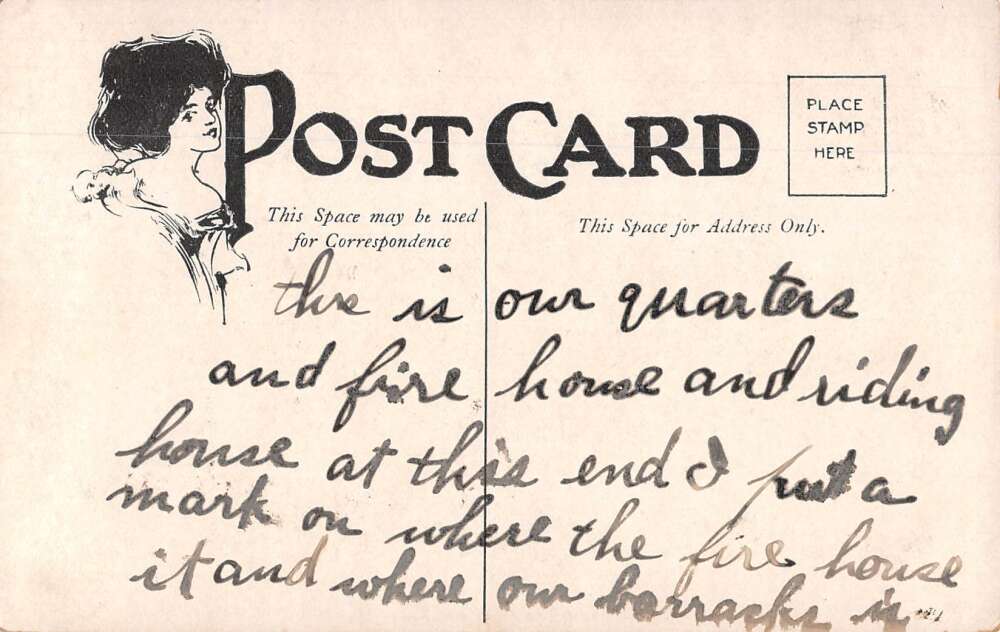 POST CARD
PLACE
STAMP
HERE
This Space may be used
for Correspondence
This Space for Address Only.
this is our quarters
and fire house and riding
house at this end I put a
mark on where the fire house
it and where our barracks is